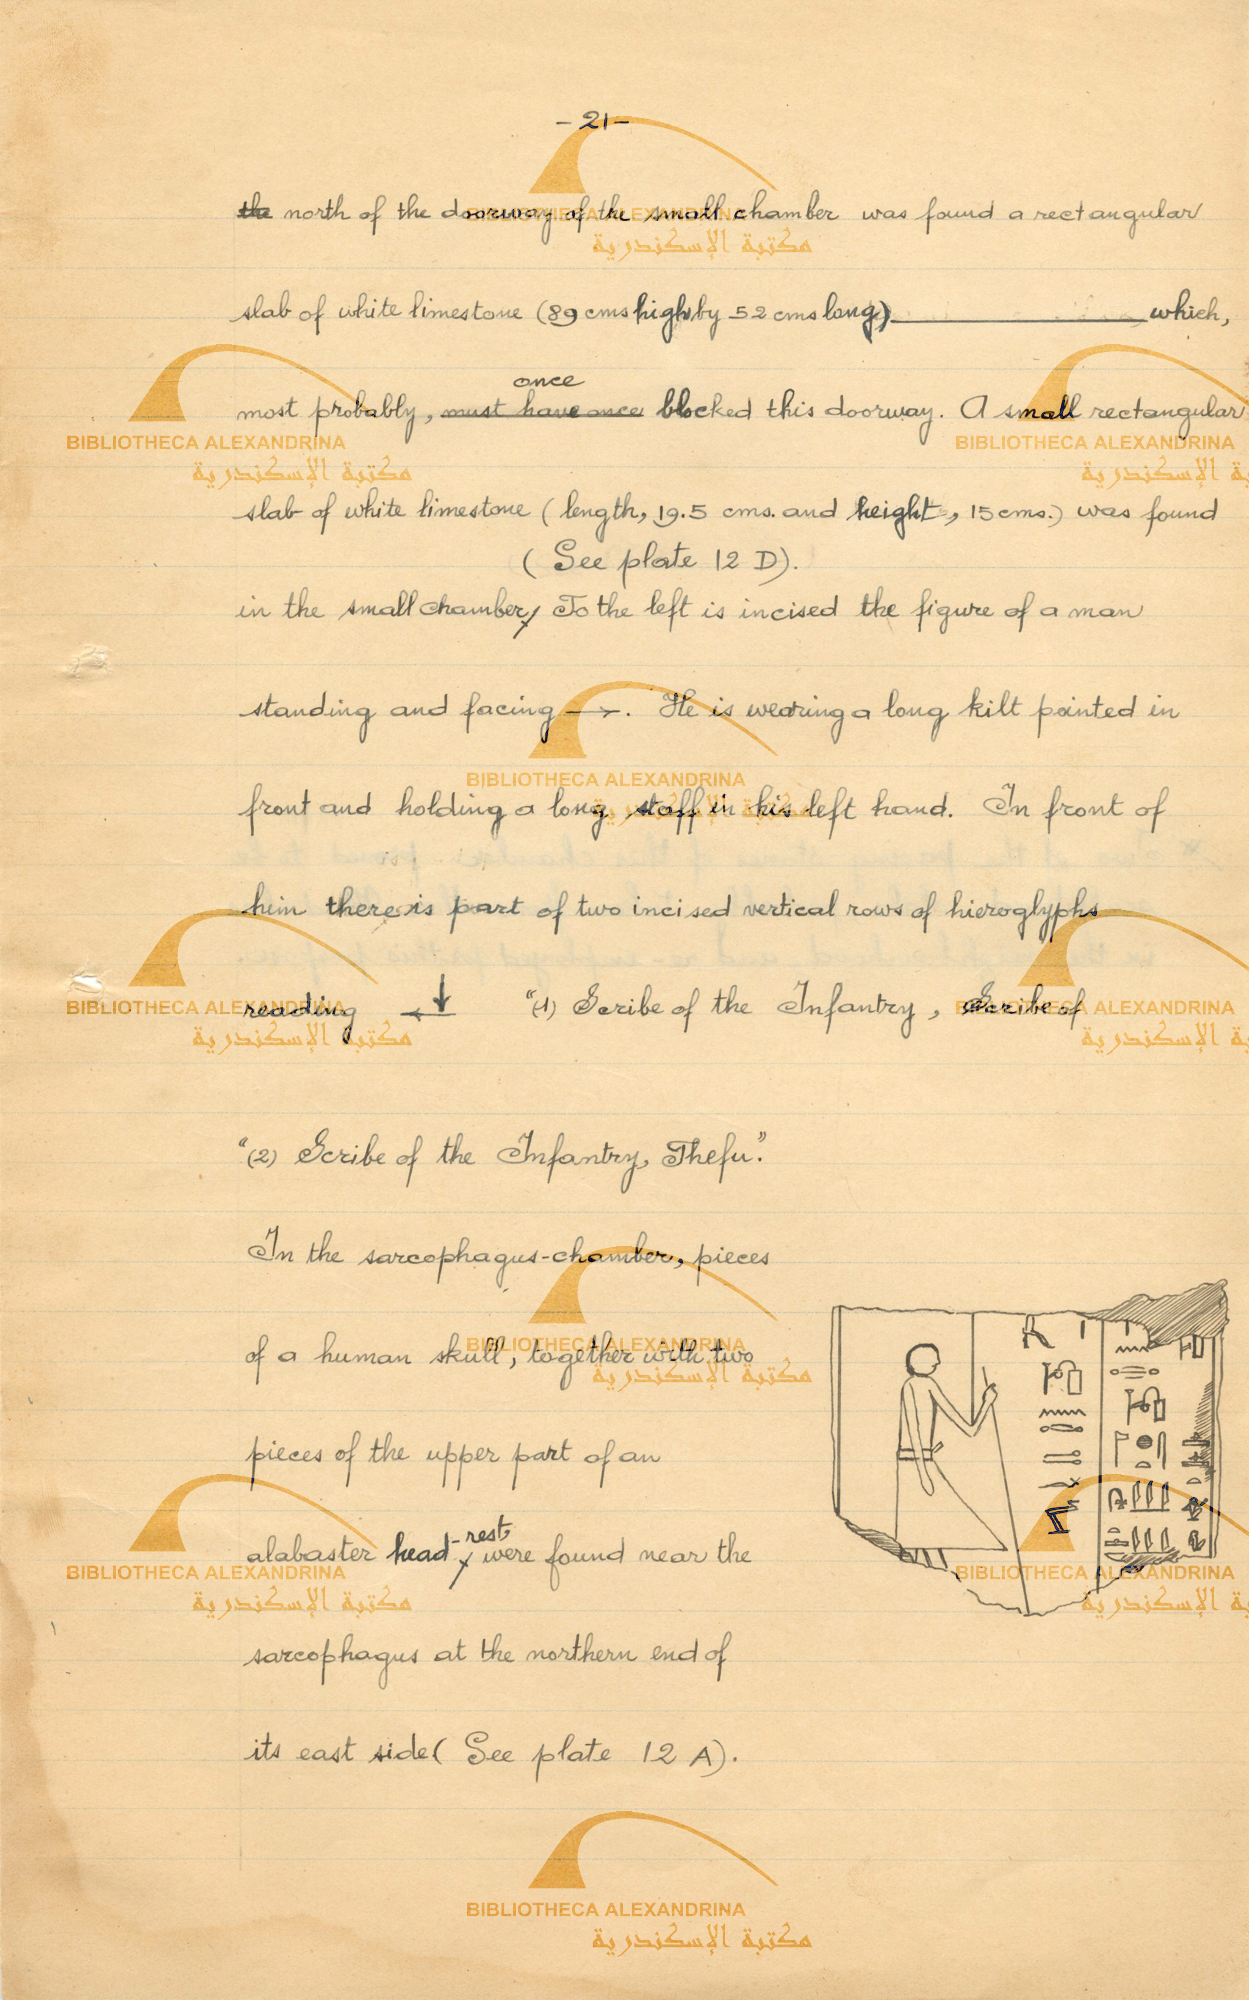 -21-
the north of the doorway of the small chamber was found a rectangular
slab of white limestone (89 cms high by 52 cms long) which,
once
most probably, must have once blocked this doorway. A small rectangular
slab of white limestone (length, 19.5 cms. and height, 15 cms.) was found
(See plate 12 D).
in the small chamber, To the left is incised the figure of a man
standing and facing →. He is wearing a long kilt pointed in
front and holding a long staff in his left hand. In front of
him there is part of two incised vertical rows of hieroglyphs
reading ←↓ "(1) Scribe of the Infantry, Scribe of
"(2) Scribe of the Infantry, Thefu".
In the sarcophagus-chamber, pieces
of a human skull, together with two
pieces of the upper part of an
alabaster head-rest were found near the
sarcophagus at the northern end of
its east side (See plate 12 A).
BIBLIOTHECA ALEXANDRINA
مكتبة الإسكندرية